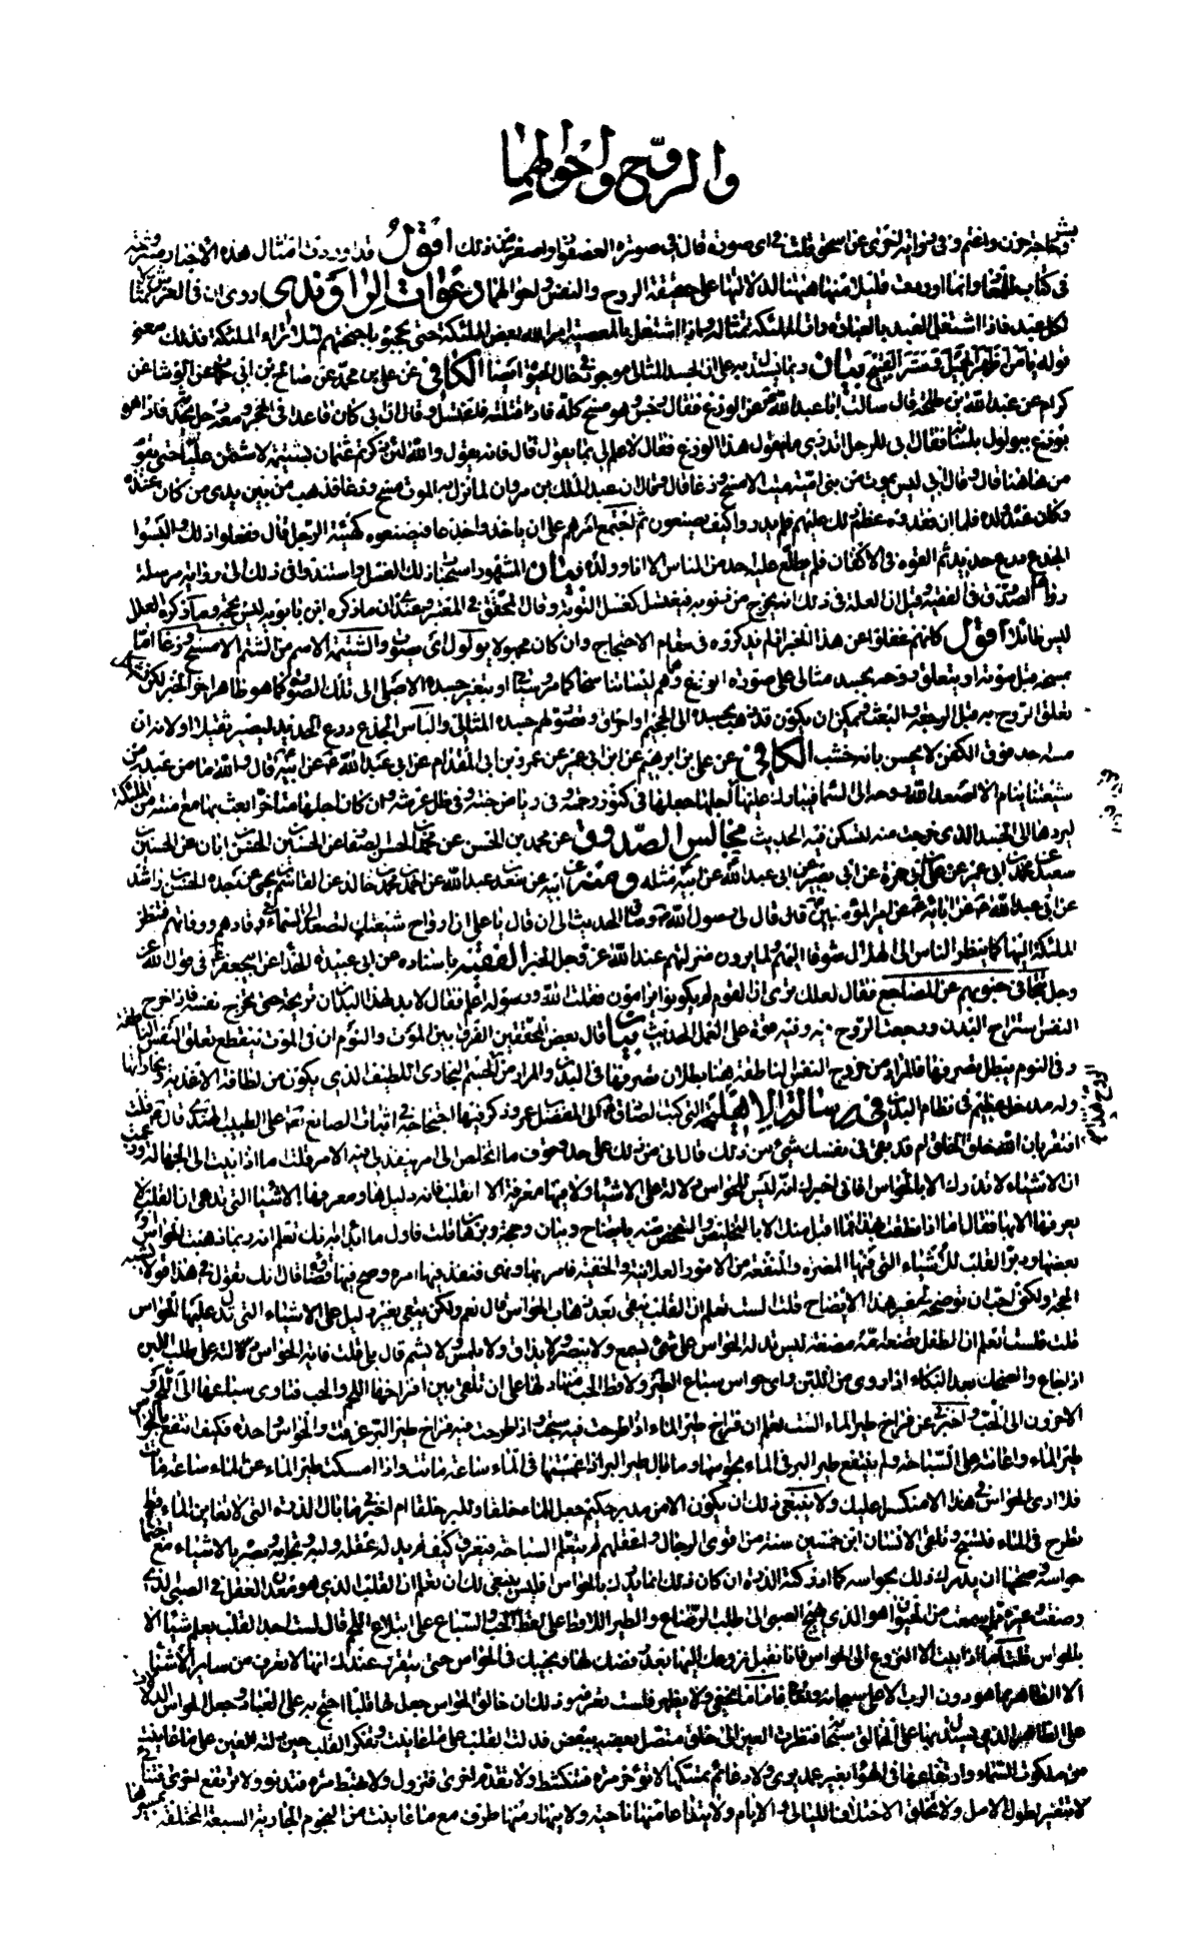 والروح واحوالهما
قال في صورة العصفور واصغر من ذلك اقول قد اوردت امثال هذه الاخبار مشروحة
في كتاب وانما اوردت قليلا منها هيهنا لدلالتها على حقيقة الروح والنفس واحوالهما دعوات الراوندي روى ان في العرش تمثالا
لكل عبد فاذا اشتغل العبد بالعبادة رات الملئكة تمثاله واذا اشتغل بالمعصية امر الله بعض الملئكة حتى يحجبوه باجنحتهم لئلا تراه الملئكة فذلك معنى
قوله يا من اظهر الجميل وستر القبيح بيان ربما يستدل به على ان الجسد المثالي موجود في حال الحيوة ايضا الكافي عن علي بن محمد عن صالح بن ابي حماد عن الوشا عن
كرام عن عبد الله بن طلحة قال سالت ابا عبد الله عن الوزغ فقال رجس وهو مسخ كله فاذا قتلته فاغتسل وقال ان ابي كان قاعدا في الحجر ومعه رجل يحدثه فاذا هو
بوزغ يولول بلسانه فقال ابي للرجل اتدري ما يقول هذا الوزغ فقال لا علم لي بما يقول قال فانه يقول والله لئن ذكرتم عثمان بشتيمة لاشتمن عليا حتى يقوم
من هاهنا قال وقال ابي ليس يموت من بني امية ميت الا مسخ وزغا قال وقال ان عبد الملك بن مروان لما نزل به الموت مسخ وزغا فذهب من بين يدي من كان عنده
وكان عنده ولده فلما ان فقدوه عظم ذلك عليهم فلم يدروا كيف يصنعون ثم اجتمع امرهم على ان ياخذوا جذعا فيصنعوه كهيئة الرجل قال ففعلوا ذلك والبسوا
الجذع درع حديد ثم القوه في الاكفان فلم يطلع عليه احد من الناس الا انا وولده بيان المشهور استحباب ذلك الغسل واستندوا في ذلك الى رواية مرسلة
رواها الصدوق في الفقيه وقيل ان العلة في ذلك انه يخرج من ذنوبه فيغتسل كغسل التوبة وقال المحقق في المعتبر وعندي ان ما ذكره ابن بابويه ليس بحجة وما ذكره المعلل
ليس طائلا اقول كانهم غفلوا عن هذا الخبر اذ لم يذكروه في مقام الاحتجاج وان كان مجهولا يولول اي يصوت والشتيمة الاسم من الشتم الا مسخ وزغا اما
بمسخه قبل موته او بتعلق روحه بجسد مثالي على صورة الوزغ
تعلق الروح به قبل الرجعة والبعث ويمكن ان يكون قد ذهب بجسده الى الجحيم او احرق وتصور لهم جسده المثالي والباس الجذع درع الحديد ليصير ثقيلا او لانه ان
مسه احد فوق الكفن لا يحس بانه خشب الكافي عن علي بن ابرهيم عن ابن ابي عمير عن عمرو بن ابي المقدام عن ابي عبد الله عن ابيه قال والله ما من عبد من
شيعتنا ينام الا اصعد الله روحه الى السماء فيبارك عليها فان كان اتى عليها اجلها جعلها في كنوز رحمته وفي رياض جنته وفي ظل عرشه وان كان اجلها متاخرا بعث بها مع امنته من الملئكة
ليردها الى الجسد الذي خرجت منه لتسكن فيه الحديث مجالس الصدوق عن محمد بن الحسن عن
ابي بصير عن ابي عبد الله عن ابيه مثله ومنه عن ابيه عن سعد بن عبد الله عن احمد بن محمد بن خالد عن القاسم بن يحيى عن جده الحسن بن راشد
عن ابي عبد الله عن ابائه عن امير المؤمنين قال قال لي رسول الله وساق الحديث الى ان قال يا علي ان ارواح شيعتك لتصعد الى السماء في رقادهم ووفاتهم فتنظر
الملئكة اليها كما ينظر الناس الى الهلال شوقا اليهم ولما يرون من منزلتهم عند الله عز وجل الخبر الفقيه باسناده عن ابي عبيدة الحذاء عن ابي جعفر في قول الله عز
وجل تتجافى جنوبهم عن المضاجع فقال لعلك ترى ان القوم لم يكونوا ينامون فقلت الله ورسوله اعلم فقال لا بد لهذا البدن ان تريحه حتى يخرج نفسه فاذا خرج
النفس استراح البدن ورجعت الروح فيه وفيه قوة على العمل الحديث بيان قال بعض المحققين الفرق بين الموت والنوم ان في الموت ينقطع تعلق النفس الناطقة
وفي النوم يبطل تصرفها فالمراد من خروج النفس الناطقة هنا بطلان تصرفها في البدن والمراد من الجسم البخاري اللطيف الذي يكون من لطافة الاغذية وبخاراتها
وله مدخل عظيم في نظام البدن في رسالة الاهليلجة التي كتب الصادق الى المفضل بن عمر وذكر فيها احتجاجه في اثبات الصانع تعالى على الطبيب الهندي قال قلت
افتقر بان الله خلق الخلق ام قد بقي في نفسك شيء من ذلك قال اني من ذلك على حد وقوف ما اتخلص الى امر ينفذ لي فيه الامر قلت اما اذا ابيت الا الجهالة وزعمت
ان الاشياء لا تدرك الا بالحواس فاني اخبرك انه ليس للحواس دلالة على الاشياء ولا فيها معرفة الا بالقلب فانه دليلها ومعرفها الاشياء التي تدعي ان القلب لا
يعرفها الا بها فقال اما اذا نطقت بهذا فما اقبل منك الا بالتخليص والتفحص منه بايضاح وبيان وحجة وبرهان قلت فاول ما ابدا به انك تعلم انه ربما ذهبت الحواس او
بعضها ودبر القلب للاشياء التي فيها المضرة والمنفعة من الامور العلانية والخفية فامر بها ونهى فنفذ فيها امره وصح فيها قضاؤه قال انك تقول في هذا قولا يشبه
الحجة ولكني احب ان توضحه لي غير هذا الايضاح قلت الست تعلم ان القلب يبقى بعد ذهاب الحواس قال نعم ولكن يبقى بغير دليل على الاشياء التي تدل عليها الحواس
قلت فلست تعلم ان الطفل تضعه امه مضغة ليس تدله الحواس على شيء يسمع ولا يبصر ولا يذاق ولا يلمس ولا يشم قال بلى قلت فاية الحواس دلته على طلب اللبن
اذا جاع والضحك بعد البكاء اذا روى من اللبن واي حواس سباع الطير ولاقط الحب منها دلها على ان تلقي بين افراخها اللحم والحب فتاوي سباعها الى اللحم و
الاخرون الى الحب واخبرني عن فراخ طير الماء الست تعلم ان فراخ طير الماء اذا طرحت فيه سبحت واذا طرحت فيه فراخ طير البر غرقت والحواس واحدة فكيف انتفع بالحواس
طير الماء واعانته على السباحة ولم ينتفع طير البر في الماء بحواسها وما بال طير البر اذا غمستها في الماء ساعة ماتت واذا امسكت طير الماء عن الماء ساعة ماتت
فلا ارى الحواس في هذا الا منكسرا عليك ولا ينبغي ذلك ان يكون الا من مدبر حكيم جعل للماء خلقا وللبر خلقا ام اخبرني ما بال الذرة التي لا تعاين الماء قط
تطرح في الماء فتسبح وتلقي الانسان ابن خمسين سنة من اقوى الرجال واعقلهم لم يتعلم السباحة فيغرق كيف لم يدله عقله ولبه وتجاربه وبصره بالاشياء مع اجتماع
حواسه وصحتها ان يدرك ذلك بحواسه كما ادركته الذرة ان كان ذلك انما يدرك بالحواس افليس ينبغي لك ان تعلم ان القلب الذي هو معدن العقل في الصبي الذي
وصفت وغيره مما سمعت من الحيوان هو الذي يهيج الصبي الى طلب الرضاع والطير اللاقط على لقط الحب والسباع على ابتلاع اللحم قال لست اجد القلب يعلم شيئا الا
بالحواس قلت اما اذا ابيت الا النزوع الى الحواس فانا نقبل نزوعك اليها بعد رفضك لها ونجيبك في الحواس حتى يتقرر عندك انها لا تعرف من سائر الاشياء
الا الظاهر مما هو دون الرب الاعلى سبحانه وتعالى فاما ما يخفى ولا يظهر فلست تعرفه وذلك ان خالق الحواس جعل لها قلبا احتج به على العباد وجعل للحواس الدلالات
على الظاهر الذي يستدل بها على الخالق سبحانه فنظرت العين الى خلق متصل بعضه ببعض فدلت القلب على ما عاينت وتفكر القلب حين دلته العين على ما عاينت
من ملكوت السماء وارتفاعها في الهواء بغير عمد يرى ولا دعائم تمسكها لا تؤخر مرة فتنكشط ولا تقدم اخرى فتزول ولا تهبط مرة فتدنو ولا ترتفع اخرى فتناى
لا تتغير لطول الامد ولا تخلق لاختلاف الليالي والايام ولا يتداعى منها ناحية ولا ينهار منها طرف مع ما عاينت من النجوم الجارية السبعة المختلفة بمسيرها